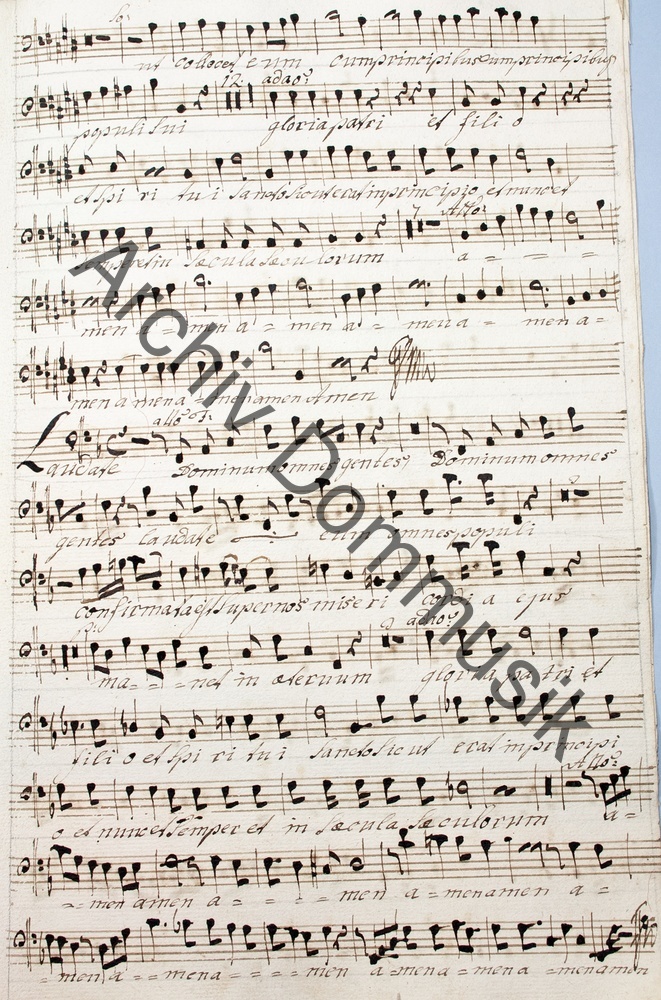 So:
ut collocet eum cum principibus cum principibus
12. adao:
populi sui gloria patri et filio
et spiritui sancto sicut erat in principio et nunc et
7 Allo:
semper et in sæcula sæculorum a = = =
men a = men a = men a = men a = men a =
men a mena = menamen Amen
allo
Laudate Dominum omnes gentes, Dominum omnes
gentes laudate eum omnes populi
confirmata est supernos miseri cordi a ejus
2 adao:
ma = = net in æternum gloria patri et
fili o et spi ri tu i sancto sicut erat in principi
Allo:
o et nunc et semper et in sæcula sæculorum a =
= = men amen a = = = = men a = menamen a =
= men a = = mena = = = = men a = mena = mena = menamen
Archiv Dommusik